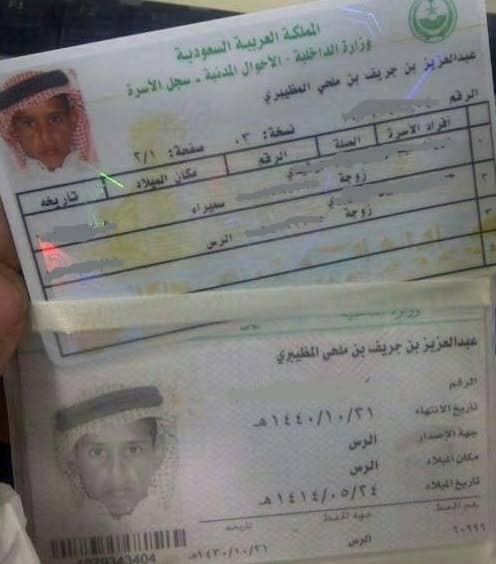 المملكة العربية السعودية
وزارة الداخلية - الأحوال المدنية - سجل الأسرة
عبدالعزيز بن جريف بن ملحي المظيبري
الرقم
نسخة: ٠٣ صفحة: ٢/١
أفراد الأسرة الصلة الرقم مكان الميلاد تاريخه
زوجة سميراء
٢ زوجة الرس
٣
عبدالعزيز بن جريف بن ملحي المظيبري
الرقم
تاريخ الانتهاء ١٤٤٠/١٠/٢١هـ
جهة الإصدار الرس
مكان الميلاد الرس
تاريخ الميلاد ١٤١٤/٠٥/٢٤هـ
رقم الحفظ جهة الحفظ تاريخه
٦٠٩٩٩ الرس ١٤٣٠/١٠/٢١هـ